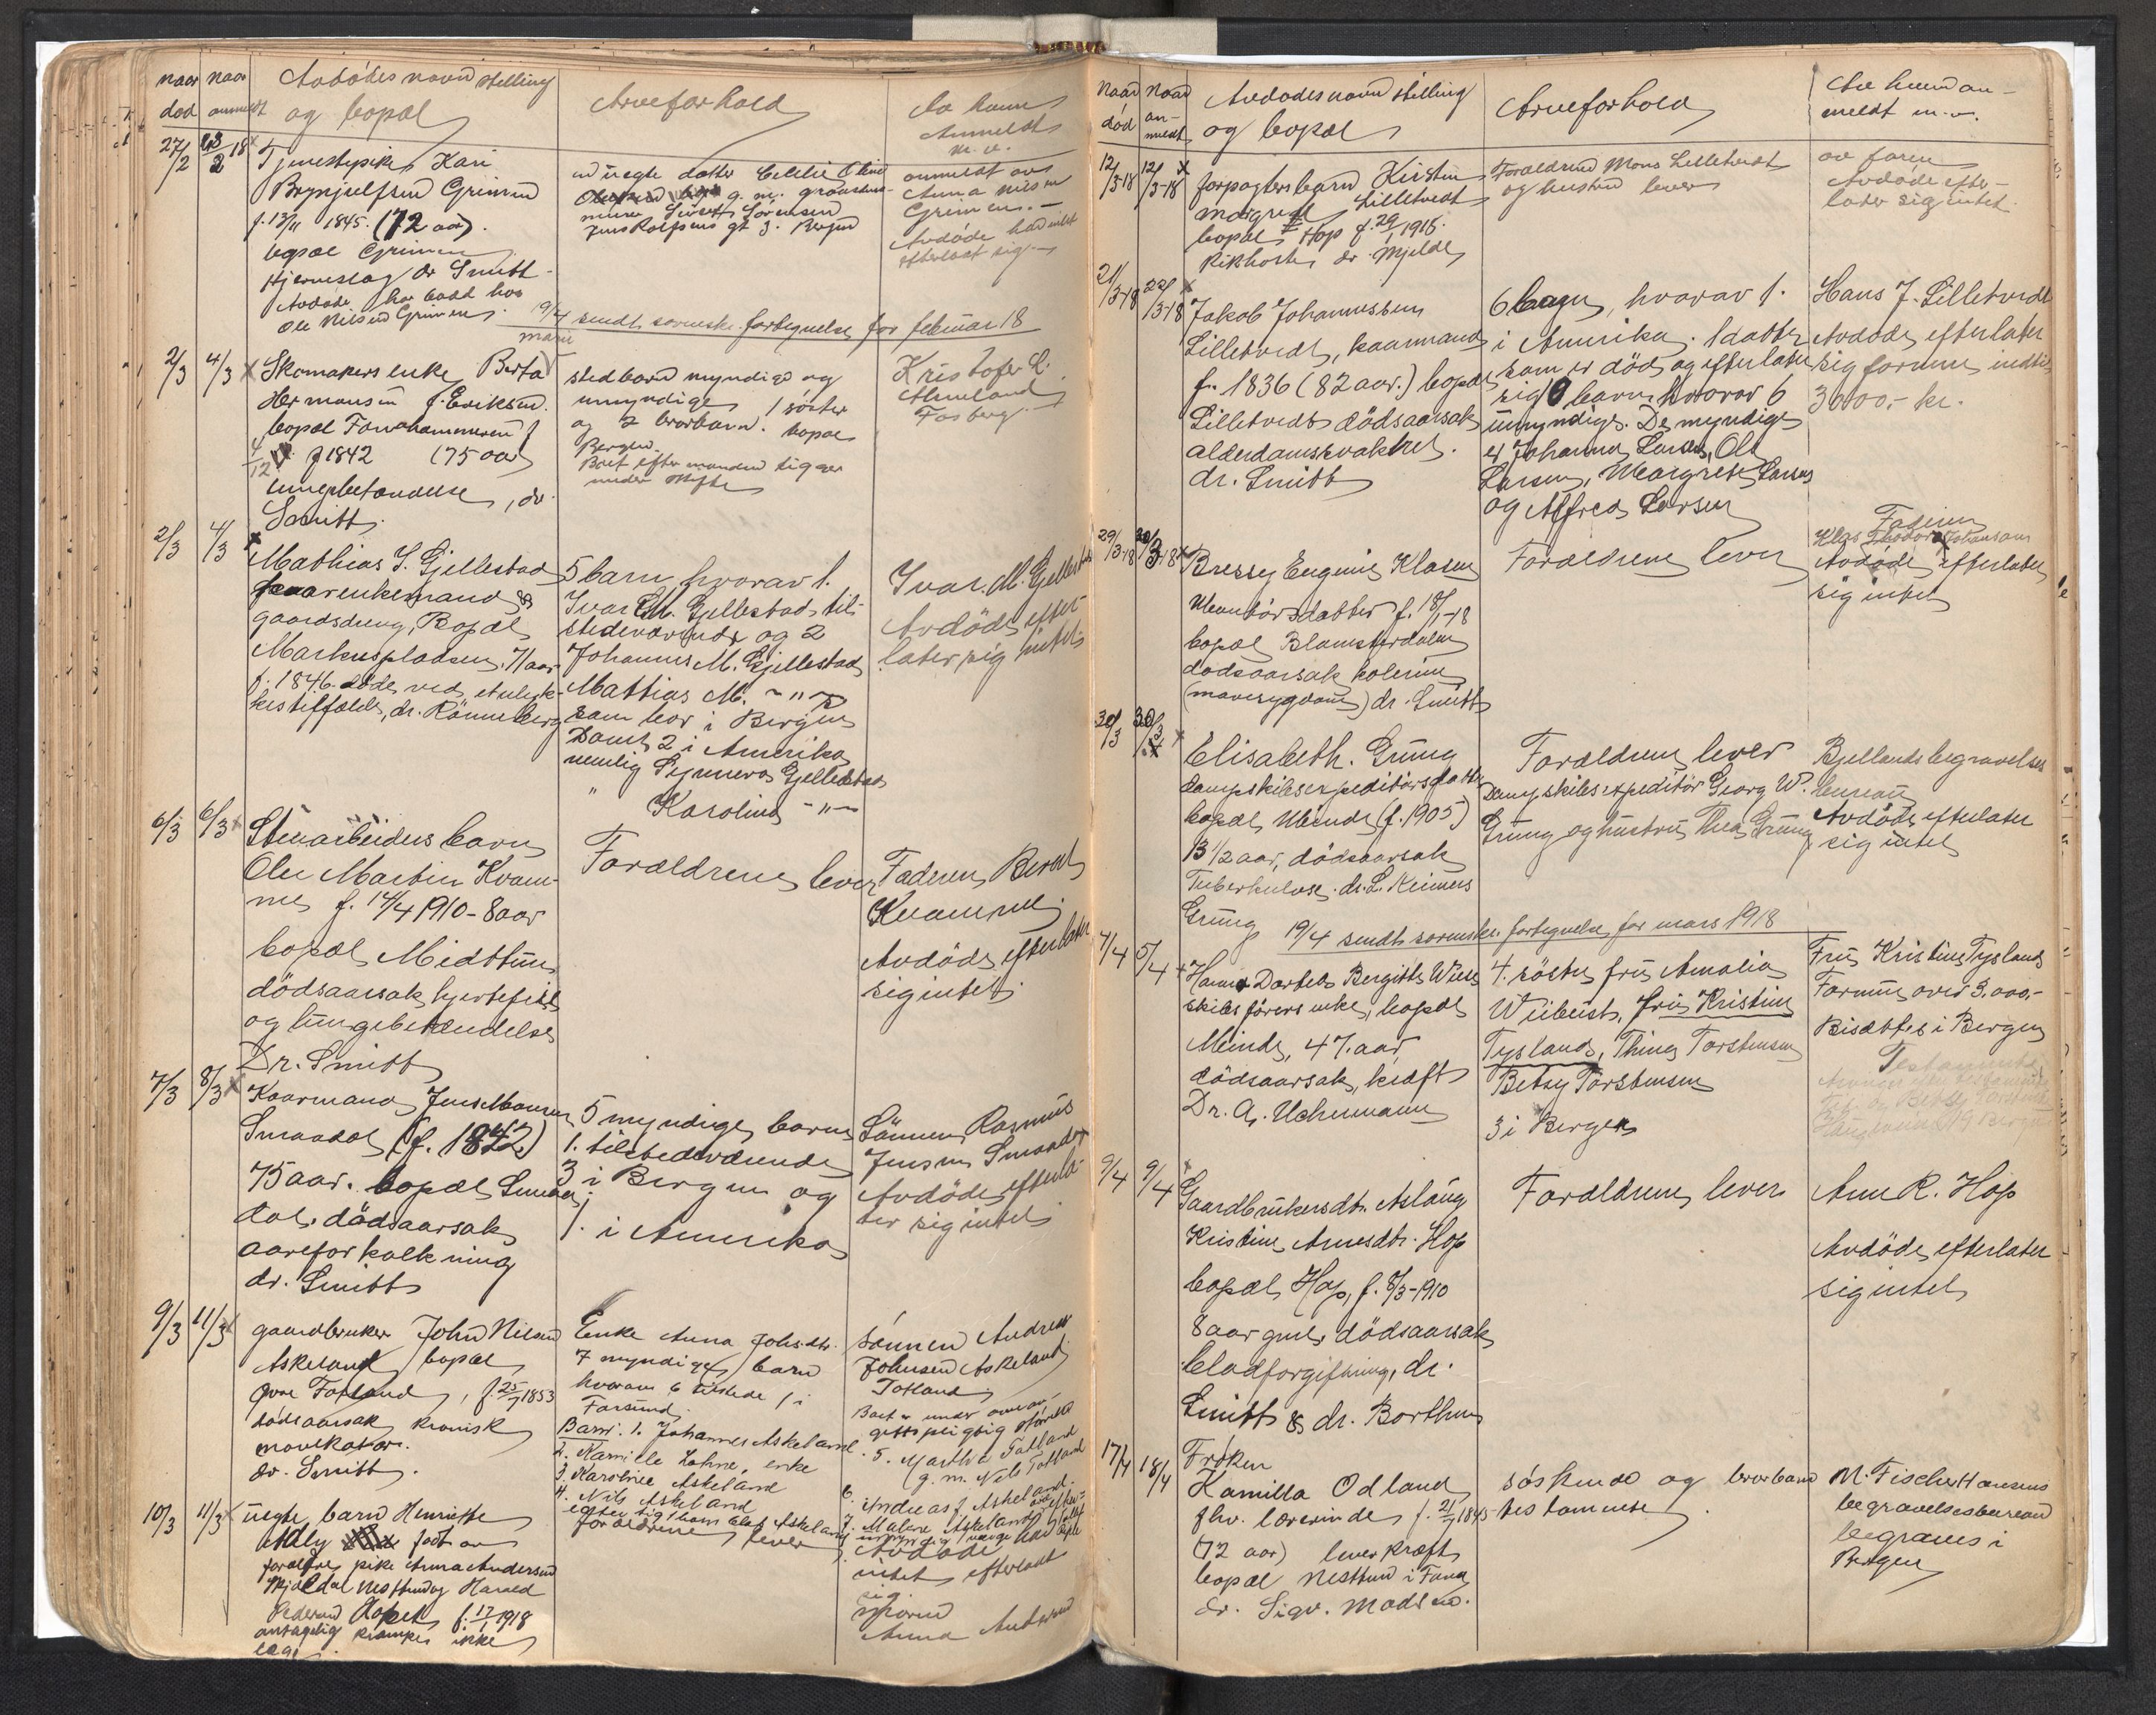 naar naar Avdødes navn stilling
død anmeldt og bopæl
Arveforhold
Av hvem
Anmeldt
m.v.
27/2 18
Tjenestepike Kari
Brynjulfsen Grimen
f. 13/11 1845. (72 aar).
bopæl Grimen
Hjerneslag dr Smitt
Avdøde har bodd hos
Ole Nilsen Grimen
en uegte datter Cecilie Oline
g. m. graastens-
murer Sivert Sørensen
Jens Rolfsens gt 3. Bergen
anmeldt av
Anna Nilsen
Grimen. -
Avdøde had intet
efterlatt sig. -
19/4 sendt sorenskr. fortegnelse for februar 18
mars
2/3 4/3 x
Skomakers enke Berta
Hermansen f. Eriksen.
bopæl
4/12 1842 (75 aar)
lungebetændelse, dr.
Smitt
stedbarn myndige og
umyndige 1 søster
og 2 brorbarn. bopæl
Bergen.
Boet efter manden ligger
under skifte
Kristofer L.
2/3 4/3 x
Mathias S. Gjellestad
enkemand &
gaardsdreng, Bopæl
Markusplassen. 71 aar
f. 1846. døde ved et ulyk-
kestilfælde, dr. Rønneberg
5 barn, hvorav 1.
Ivar M. Gjellestad til-
stedeværende og 2
Johannes M. Gjellestad
Mattias M. - " -
som bor i Bergen
Samt 2 i Amerika
nemlig Gjellestad
" Karoline - " -
Ivar. M. Gjellestad
Avdøde efter-
later sig intet.
6/3 6/3 x
Stenarbeiders barn
Ole Martin Kvam-
me f. 14/4 1910 - 8 aar
bopæl Midttun
dødsaarsak hjertefeil
og lungebetændelse
Dr. Smitt
Forældrene lever
Faderen Bernt
Kvamme.
Avdøde efterlater
sig intet.
7/3 8/3 x
Kaarmand Jens Monsen
Smaadal (f. 1842)
75 aar. bopæl Smaa-
dal. dødsaarsak
aareforkalkning
dr. Smitt
5 myndige barn
1. tilstedeværende
3 i Bergen og
1. i Amerika
Sønnen Rasmus
Jensen Smaadal
Avdøde efterla-
ter sig intet
9/3 11/3 x
gaardbruker John Nilsen
Askeland bopæl
øvre Totland, f. 25/7 1853
dødsaarsak kronisk
mavekatar.
dr. Smitt.
Enke Anna Johs.dtr.
7 myndige barn
hvorav 6 tilstede 1 i
Farsund.
Barn: 1. Johannes Askeland
2. Kamille Lohne, enke
3. Karoline Askeland
4. Nils Askeland
sønnen Andreas
Johnsen Askeland
Totland
5. Martha Totland
g. m. Nils Totland
6. Andreas J. Askeland.
7. Malene Askeland
10/3 11/3 x
uegte barn Henriette
Adly født av
forældre pike Anna Andersen
Mjeldal Nesttun og Harald
Pedersen Hopen f. 17/1 1918
antagelig krampe ikke
læge.
forældrene lever
Avdøde har
intet efterlatt
sig.
moren
Anna Andersen
Naar Naar Avdødes navn stilling
død an-
meldt og bopæl
Arveforhold
Av hvem an-
meldt m.v.
12/3-18 12/3-18 x
forpagters barn Kristine
Margrete Lilletvedt
bopæl Hop f. 29/1 1915.
Kikhoste dr. Mjelde
Forældrene Mons Lilletvedt
og hustru lever
av faren
Avdøde efter-
later sig intet.
21/3-18 22/3-18 x
Jakob Johannessen
Lilletvedt, kaarmand
f. 1836 (82 aar.) bopæl
Lilletvedt dødsaarsak
alderdomssvakhet.
dr. Smitt
6 barn, hvorav 1.
i Amerika. 1 datter
som er død og efterlater
sig barn hvorav 6
umyndige. De myndige
er Johanna Larsen, Ole
Larsen, Margrete Larsen
og Alfred Larsen
Hans J. Lilletvedt
Avdøde efterlater
sig formue indtil
3000,- kr.
29/3-18 30/3-18 x
Bressy Eugenie Klasen
Montørs datter f. 18/1-18
bopæl Blomsterdalen
dødsaarsak kolerine
(mavesygdom) dr. Smitt
Forældrene lever
Faderen
Klas Theodor Johansen
Avdøde efterlater
sig intet
30/3 30/3 x
Elisabeth. Grung
dampskibsexpeditørs datter
bopæl Minde (f. 1905)
13 1/2 aar, dødsaarsak
Tuberkulose. dr. L. Reimers
Grung
Forældrene lever
Dampskibsexpeditør Georg W.
Grung og hustru Thea Grung
Bjellands begravelses
bureau
Avdøde efterlater
sig intet
19/4 sendt sorenskr. fortegnelse for mars 1918
4/4 5/4 x
Hanna Dortea Bergitte Wiese
skibsførers enke, bopæl
Minde, 47. aar,
dødsaarsak, kræft
Dr. A. Uchermann
4. søstre fru Amalia
fru Kristine
Tysland, Thina Torstensen
Betsy Torstensen
3 i Bergen
Fru Kristine Tysland
Formue over 3.000,-
Bisættes i Bergen
Testamente
9/4 9/4 x
Gaardbrukersdtr. Aslaug
Kristine Arnesdtr. Hop
bopæl Hop, f. 8/3-1910
8 aar gml. dødsaarsak
blodforgiftning, dr.
Smitt & dr. Borthen
Forældrene lever
Arne R. Hop
Avdøde efterlater
sig intet
17/4 18/4
Frøken
Kamilla Odland
fhv. lærerinde f. 21/7 1845
(72 aar) leverkræft
bopæl Nesttun i Fana
dr. Sigv. Madsen.
søskende og brorbarn
testamente.
M. Fischer Hansens
begravelsesbureau
begraves i
Bergen